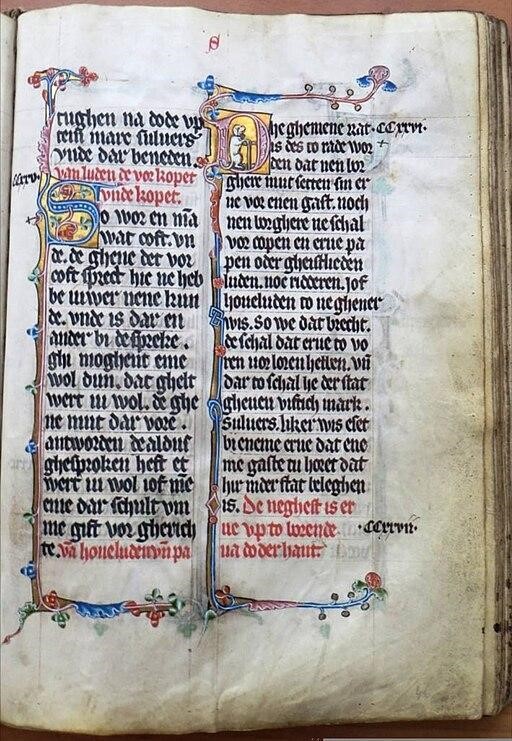 S
trughen na dode vp
tein mare suluers
vnde dar beneden.
van luden de vor kopet
vnde kopet.
So wor en mā
wat coft. vn
de. de ghene det vor
coft sprect hie ne heb
be is wer nene kun
de. vnde is dar en
ander bi de spreke.
ghi moghent eme
wol dun. dat ghelt
wert iu wol. de ghe
ne mut dar vore.
antworden de aldus
ghesproken heft et
wert iu wol iof me
eme dar schult vm
me gift vor gherich
te. vā houeluden vn̄ pa
Dhe ghemene rat CCxxvi.
is des to rade wor
den dat nen bor
ghere mut setten sin er
ne vor enen gast. noch
nen borghere ne schal
vor copen en erue pa
pen oder gheistleden
luden. noe ridderen. Jof
houeluden to ne ghener
wis. So we dat brecht.
de schal dat erue to vo
ren vor loren hebben. vn̄
dar to schal he der stat
gheuen viftich mark.
suluers. liker wis eset
bi eneme erue dat ene
me gaste tu horet dat
hir in der stat beleghen
is. De neghest is er
ue vp to borende CCxxvii.
na doder hant.